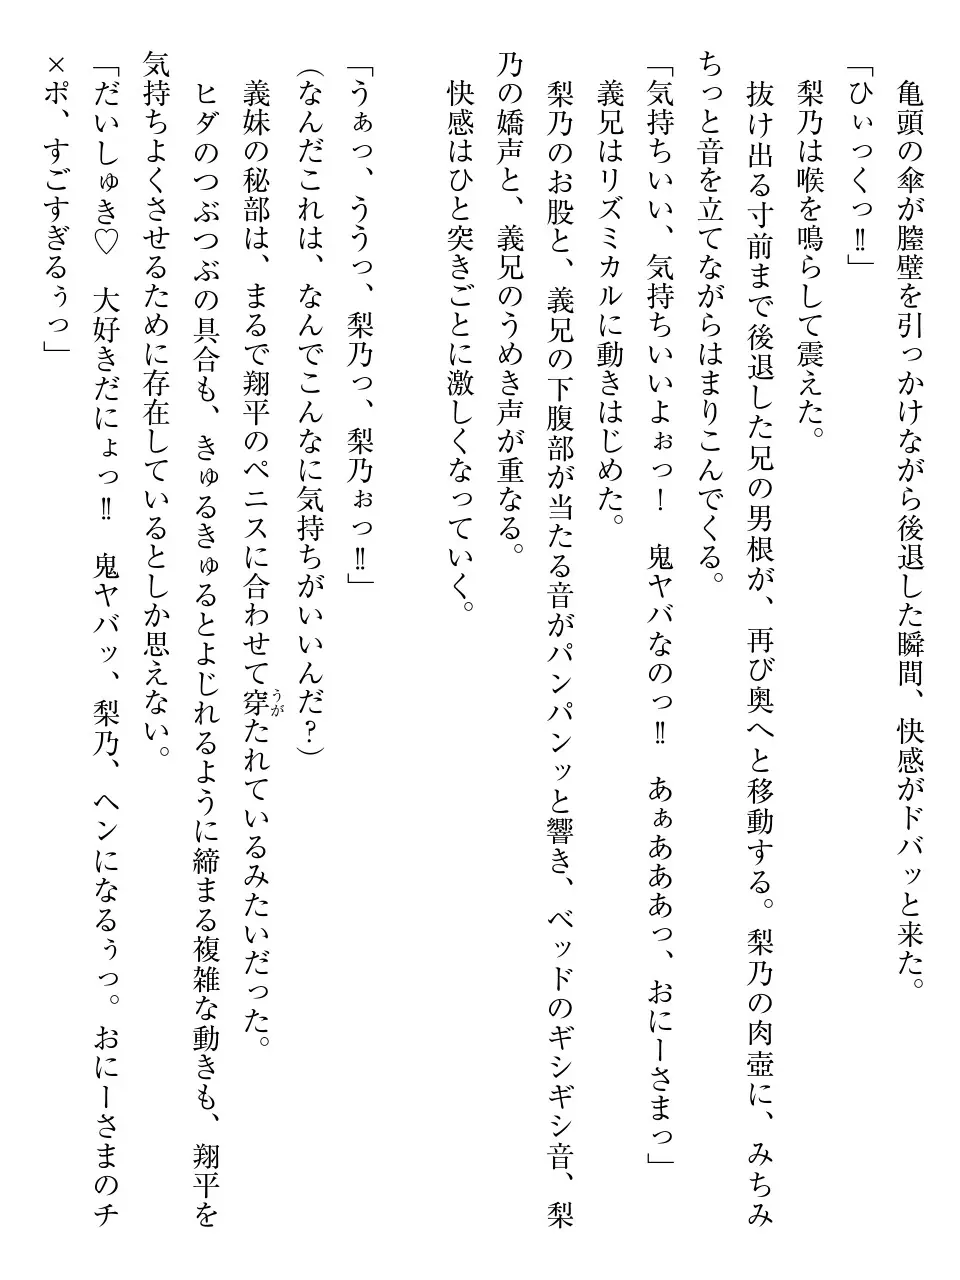 亀頭の傘が膣壁を引っかけながら後退した瞬間、快感がドバッと来た。
「ひぃっくっ‼」
梨乃は喉を鳴らして震えた。
抜け出る寸前まで後退した兄の男根が、再び奥へと移動する。梨乃の肉壺に、みちみ
ちっと音を立てながらはまりこんでくる。
「気持ちいい、気持ちいいよぉっ！　鬼ヤバなのっ‼　あぁあああっ、おにーさまっ」
義兄はリズミカルに動きはじめた。
梨乃のお股と、義兄の下腹部が当たる音がパンパンッと響き、ベッドのギシギシ音、梨
乃の嬌声と、義兄のうめき声が重なる。
快感はひと突きごとに激しくなっていく。
「うぁっ、ううっ、梨乃っ、梨乃ぉっ‼」
（なんだこれは、なんでこんなに気持ちがいいんだ？）
義妹の秘部は、まるで翔平のペニスに合わせて穿うがたれているみたいだった。
ヒダのつぶつぶの具合も、きゅるきゅるとよじれるように締まる複雑な動きも、翔平を
気持ちよくさせるために存在しているとしか思えない。
「だいしゅき♡　大好きだにょっ‼　鬼ヤバッ、梨乃、ヘンになるぅっ。おにーさまのチ
×ポ、すごすぎるぅっ」